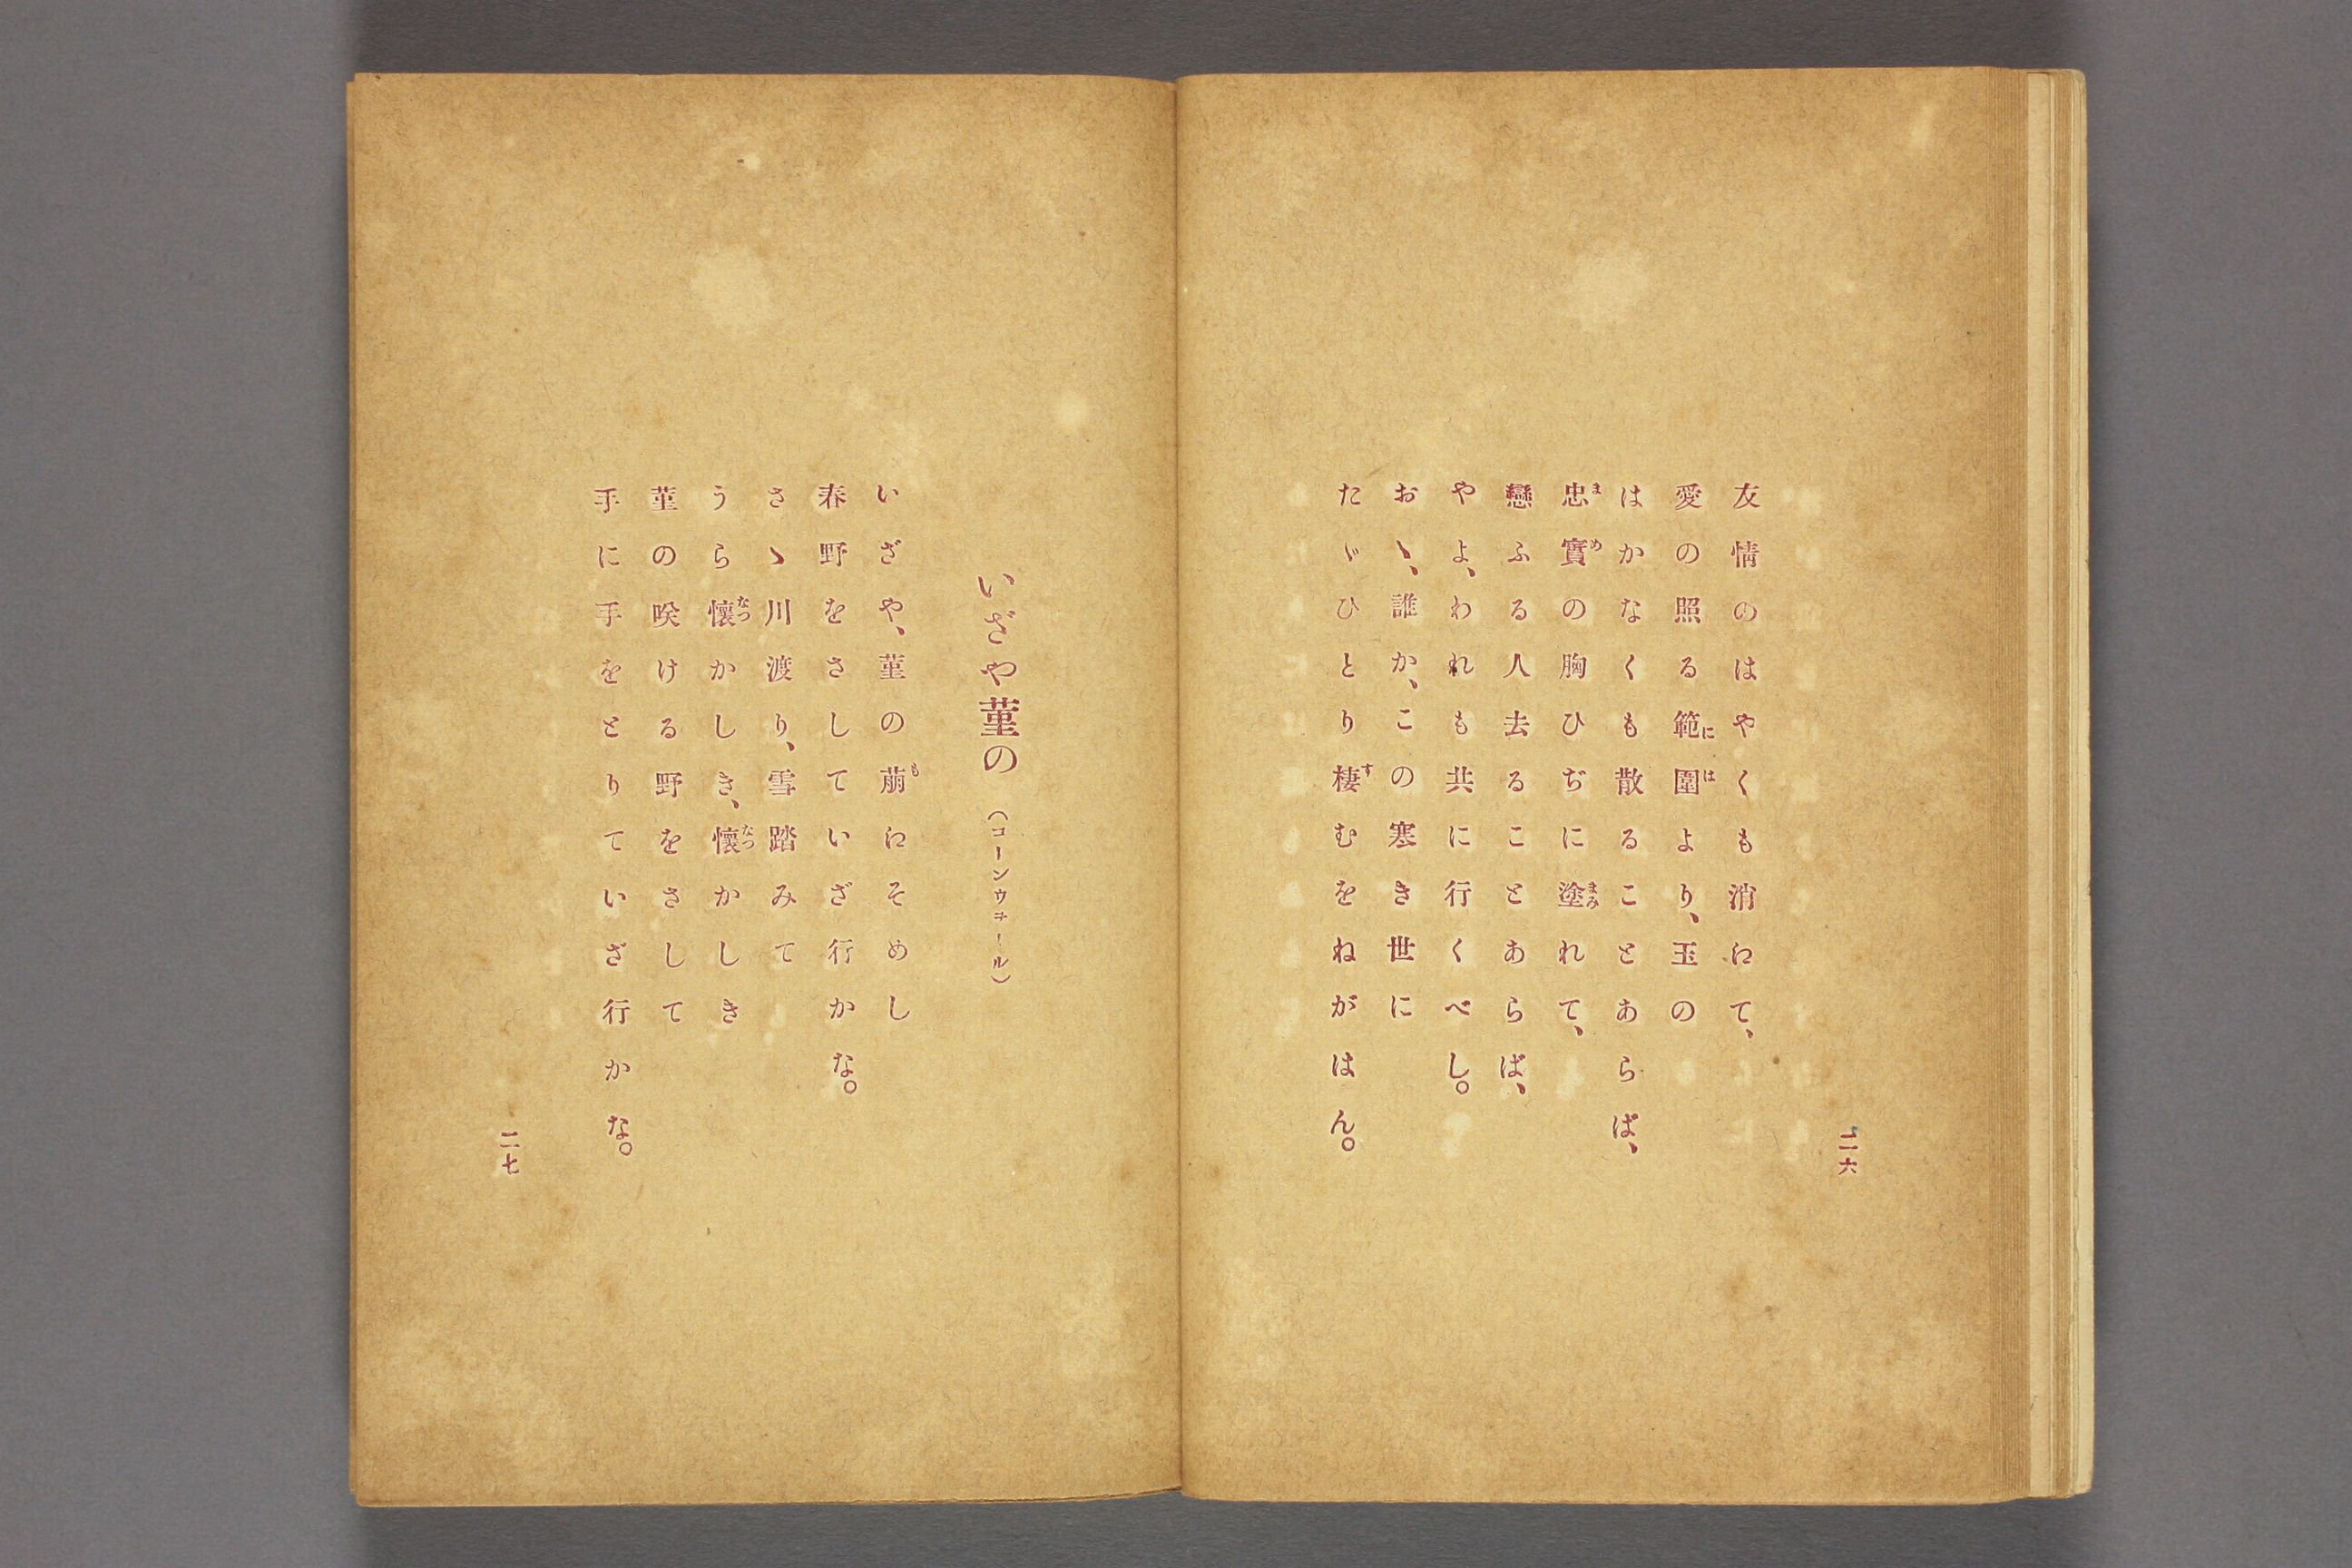 二六
友情のはやくも消𛀁て、
愛の照る範圍より、玉の
はかなくも散ることあらば、
忠實の胸ひぢに塗れて、
戀ふる人去ることあらば、
やよ、われも共に行くべし。
おゝ、誰か、この寒き世に
たゞひとり棲むをねがはん。
いざや菫の（コーンウヲール）
いざや、菫の萠𛀁そめし
春野をさしていざ行かな。
さゝ川渡り、雪踏みて
うら懷かしき、懷かしき
菫の咲ける野をさして
手に手をとりていざ行かな。
二七